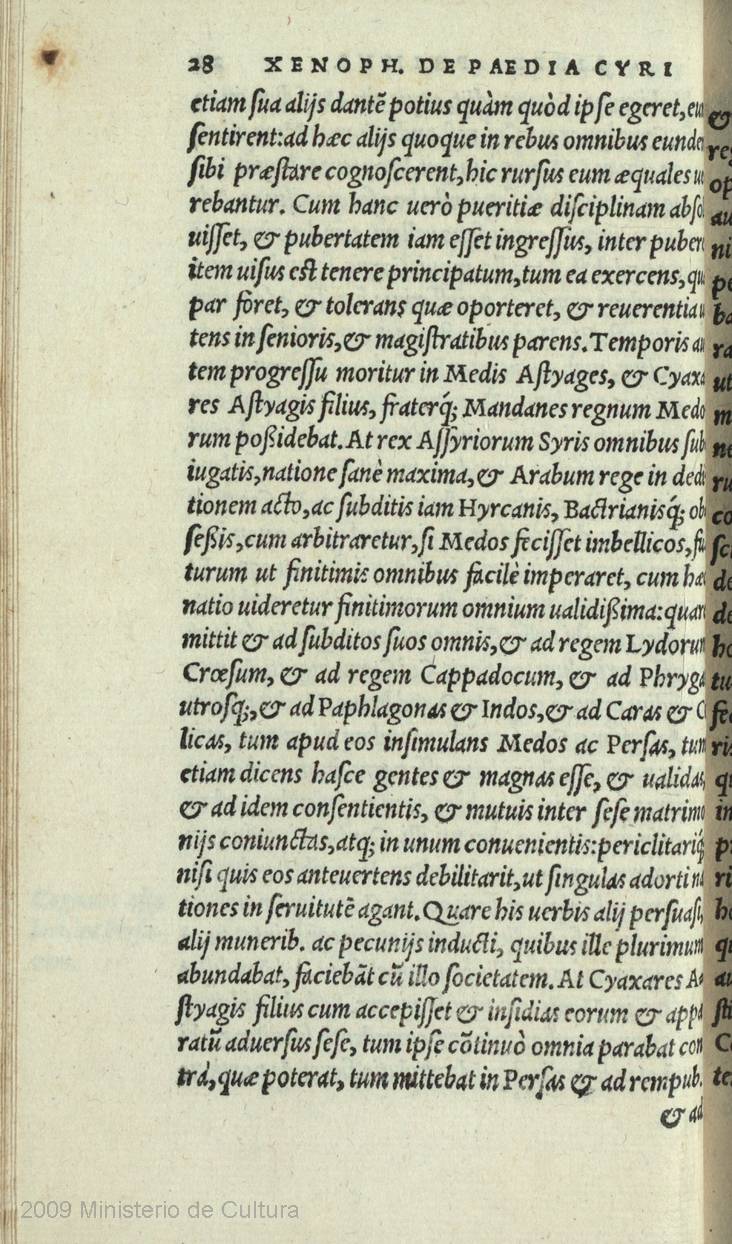 28 XENOPH. DE PAEDIA CYRI
etiam sua alijs dantē potius quàm quòd ipse egeret,
sentirent:ad hæc alijs quoque in rebus omnibus eunde
sibi præstare cognoscerent,hic rursus eum æquales
rebantur. Cum hanc uerò pueritiæ disciplinam abso
uisset, & pubertatem iam esset ingressus, inter puber
item uisus est tenere principatum,tum ea exercens,qu
par foret, & tolerans quæ oporteret, & reuerentia
tens in senioris,& magistratibus parens.Temporis au
tem progressu moritur in Medis Astyages, & Cyaxa
res Astyagis filius, fraterq́; Mandanes regnum Medo
rum poßidebat.At rex Assyriorum Syris omnibus sub
iugatis,natione sanè maxima,& Arabum rege in dedi
tionem acto,ac subditis iam Hyrcanis, Bactrianisq́; ob
seßis,cum arbitraretur,si Medos fecisset imbellicos,fu
turum ut finitimis omnibus facilè imperaret, cum hæ
natio uideretur finitimorum omnium ualidißima:quar
mittit & ad subditos suos omnis,& ad regem Lydorum
Crœsum, & ad regem Cappadocum, & ad Phryga
utrosq;,& ad Paphlagonas & Indos,& ad Caras & C
licas, tum apud eos insimulans Medos ac Persas, tum
etiam dicens hasce gentes & magnas esse, & ualidas,
& ad idem consentientis, & mutuis inter sese matrimo
nijs coniunctas,atq; in unum conuenientis:periclitariq́
nisi quis eos anteuertens debilitarit,ut singulas adorti na
tiones in seruitutē agant.Quare his uerbis alij persuasi,
alij munerib. ac pecunijs inducti, quibus ille plurimum
abundabat, faciebāt cū illo societatem. At Cyaxares A
styagis filius cum accepisset & insidias eorum & appa
ratū aduersus sese, tum ipse cōtinuò omnia parabat con
trà,quæ poterat, tum mittebat in Persas & ad rempub.
& ad
2009 Ministerio de Cultura